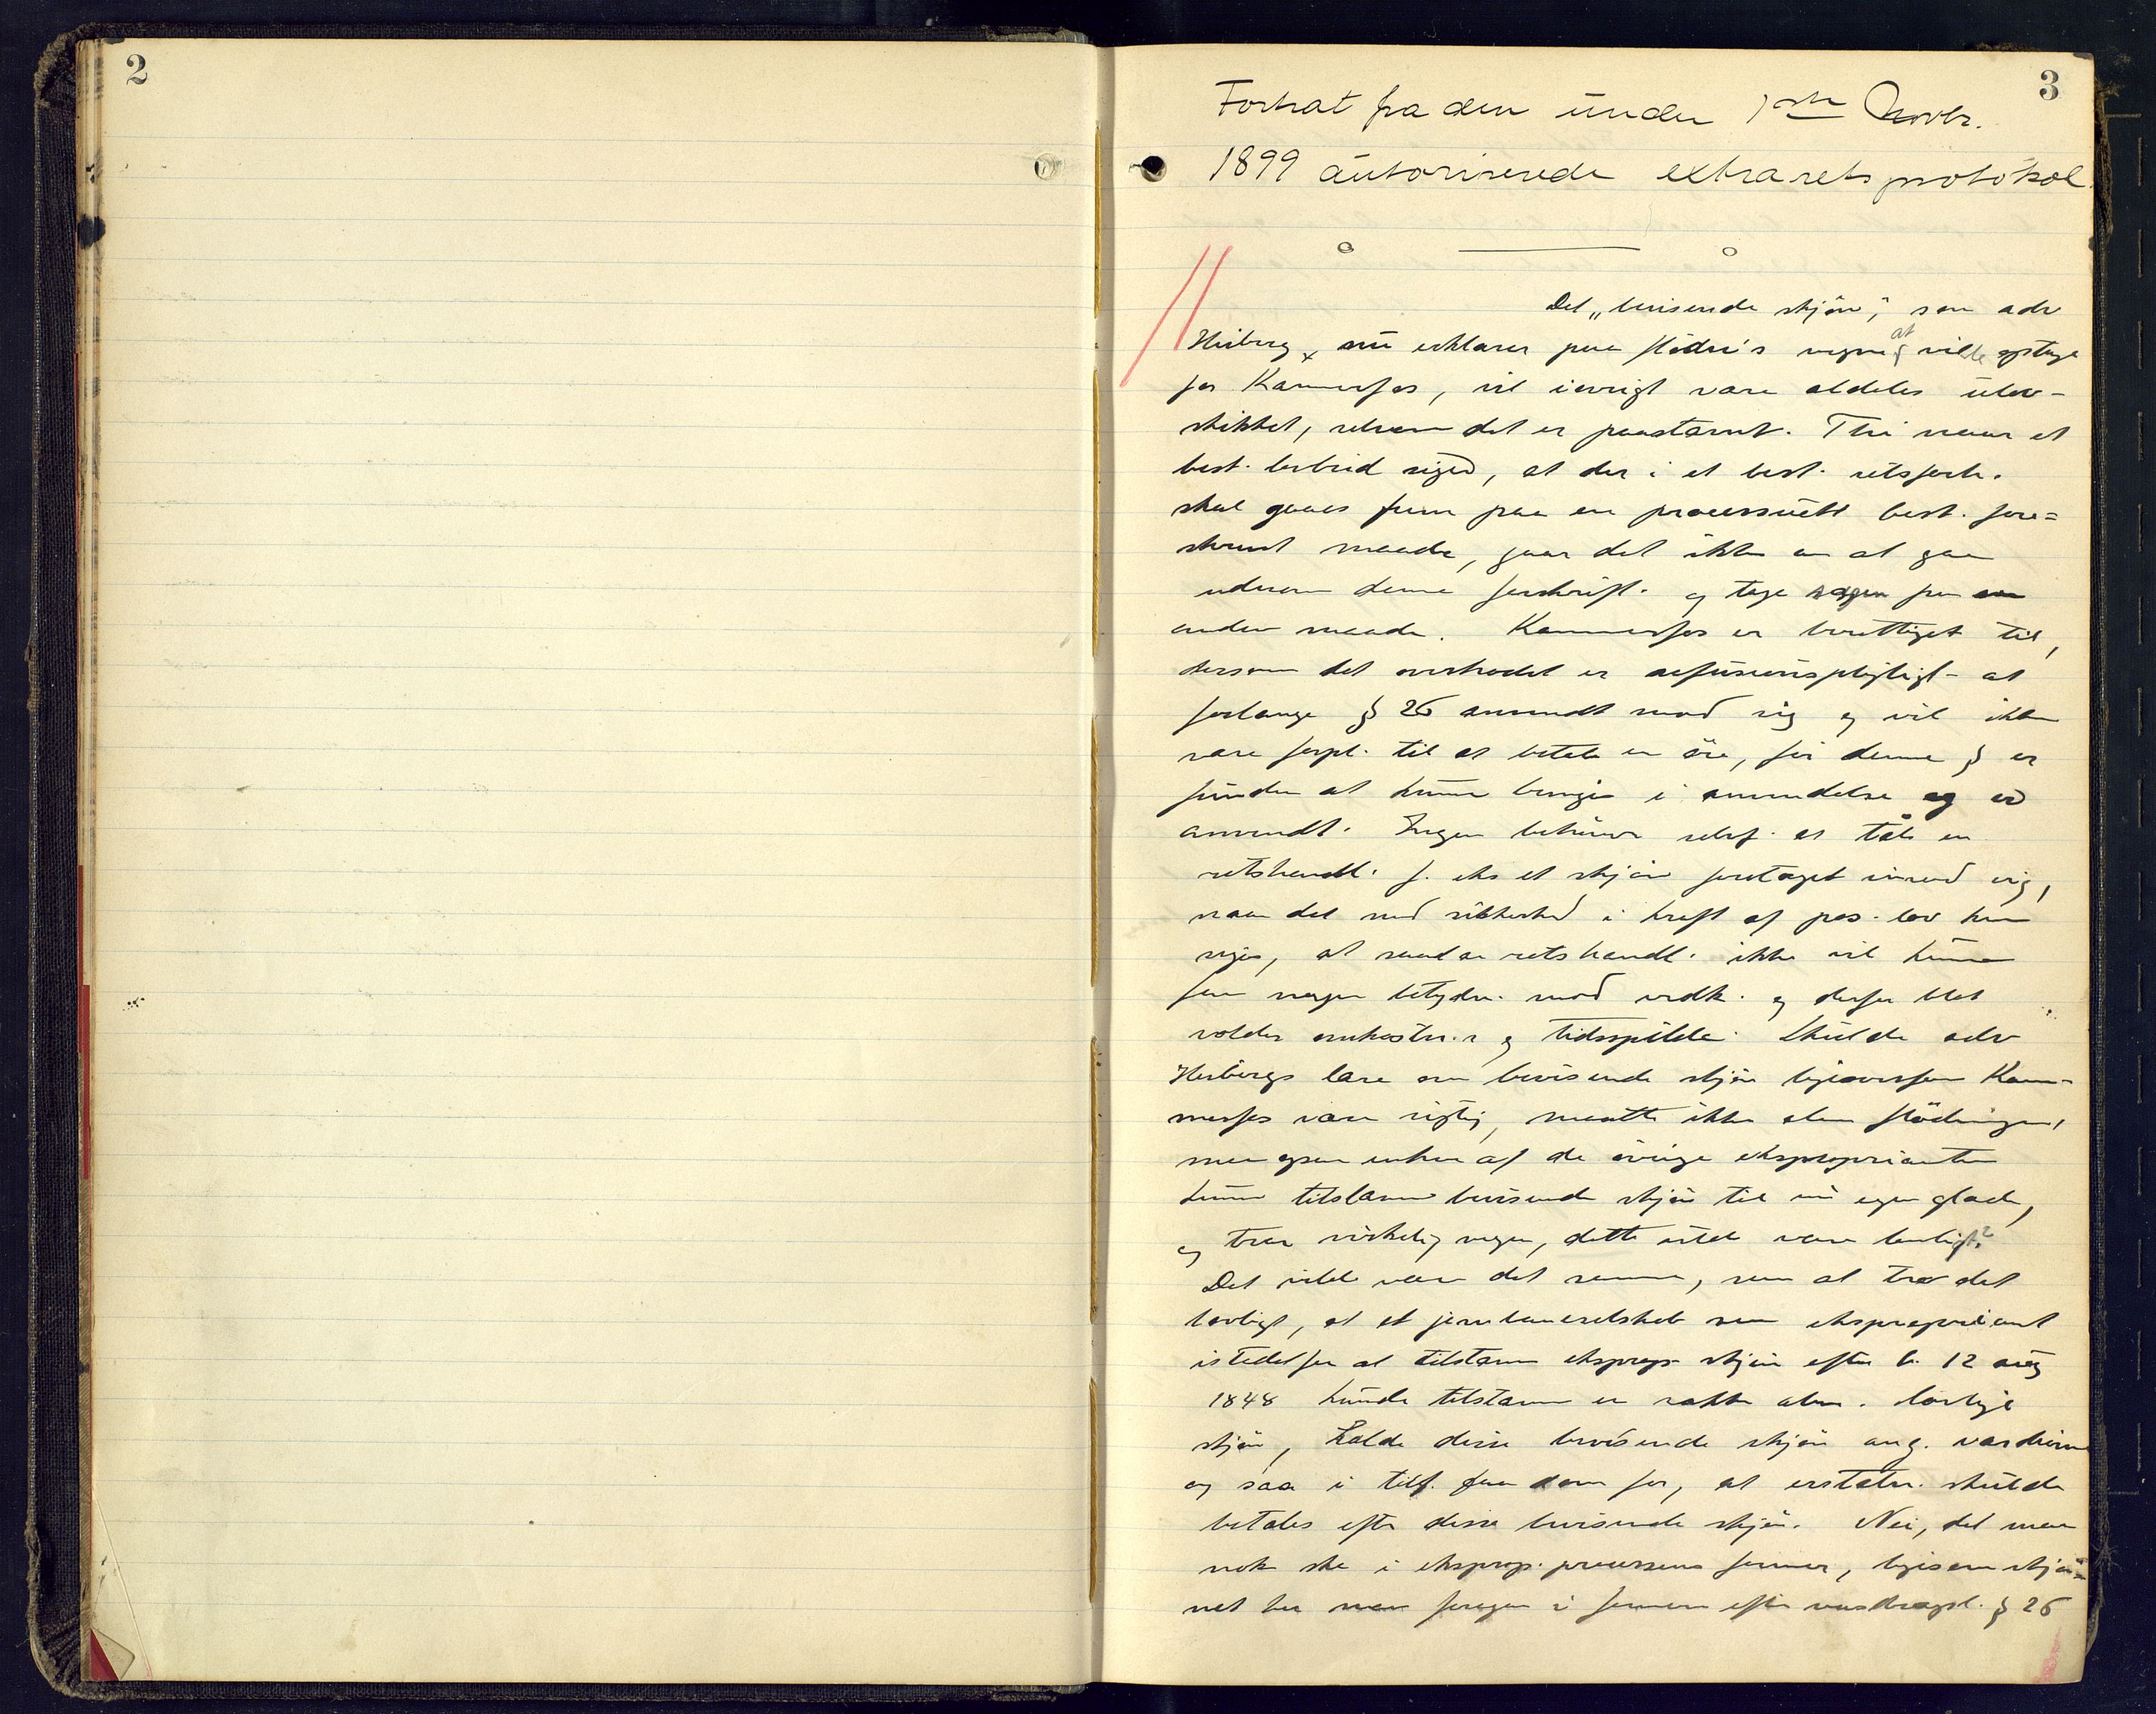 2
3
Fortsat fra den under 1ste Novbr.
1899 autoriserede extraretsprotokol.
Det „bevisende skjön", som adv
Heiberg nu erklærer paa Flödni's vegne at ville optage
for Kammerfos, vil iøvrigt være aldeles ulov-
skikket, selvom det er paastævnt. Thi naar et
best. lovbud siger, at der i et best. retsforh.
skal gaaes frem paa en processuelt best. fore=
skrevet maade, gaar det ikke an at gaa
udenom denne forskrift. og tage sagen paa en
anden maade. Kammerfos er berettiget til,
dersom det overhodet er refusionspligtigt - at
forlange § 26 anvendt mod sig og vil ikke
være forpl. til at betale en öre, för denne § er
funden at kunne bringes i anvendelse og er
anvendt. Ingen behøver self. at taale en
retshandl. f. eks et skjön foretaget imod sig,
naar det med sikkerhed i kraft af pos. lov kan
siges, at saadan retshandl. ikke vil kunne
faa nogen betydn. mod vedk. og derfor blot
volder omkostn.r og tidsspilde. Skulde adv
Heibergs lære om bevisende skjön ligeoverfor Kam-
merfos være rigtig, maatte ikke alene Flödningen,
men ogsaa enhver af de övrige ekspropriante
kunne tilstævne bevisende skjön til sin egen glæde,
og tror virkelig nogen, dette vilde være lovligt?
Det vilde være det samme, som at tro det
lovligt, at et jernbaneselskab som ekspropriant
istedetfor at tilstævne eksprop. skjön efter l. 12 aug
1848 kunde tilstævne en række alm. lovlige
skjön, kalde disse bevisende skjön ang. værdierne
og saa i tilf. faa dom for, at erstatn. skulde
betales efter disse bevisende skjön. Nei, det maa
nok ske i eksprop. processens former, ligesom skjön=
net her maa foregaa i formen efter vasdragsl. § 26